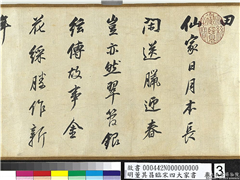 田
仙家日月本長
閑送臘迎春
豈亦然翠管銀
絵傳故事金
花綵勝作新
年
故書000442N000000000
明董其昌臨宋四大家書 卷
3